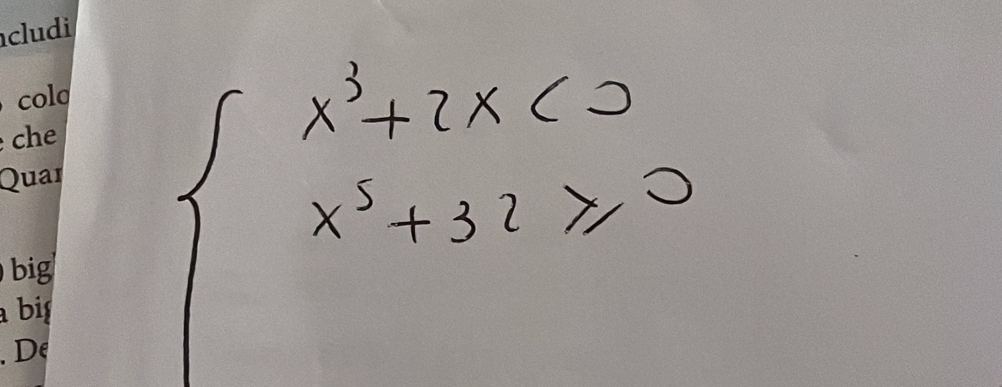 ncludi
colo
che
Quar
big
a big
. De
x³+2x<0
x⁵+32⩾0